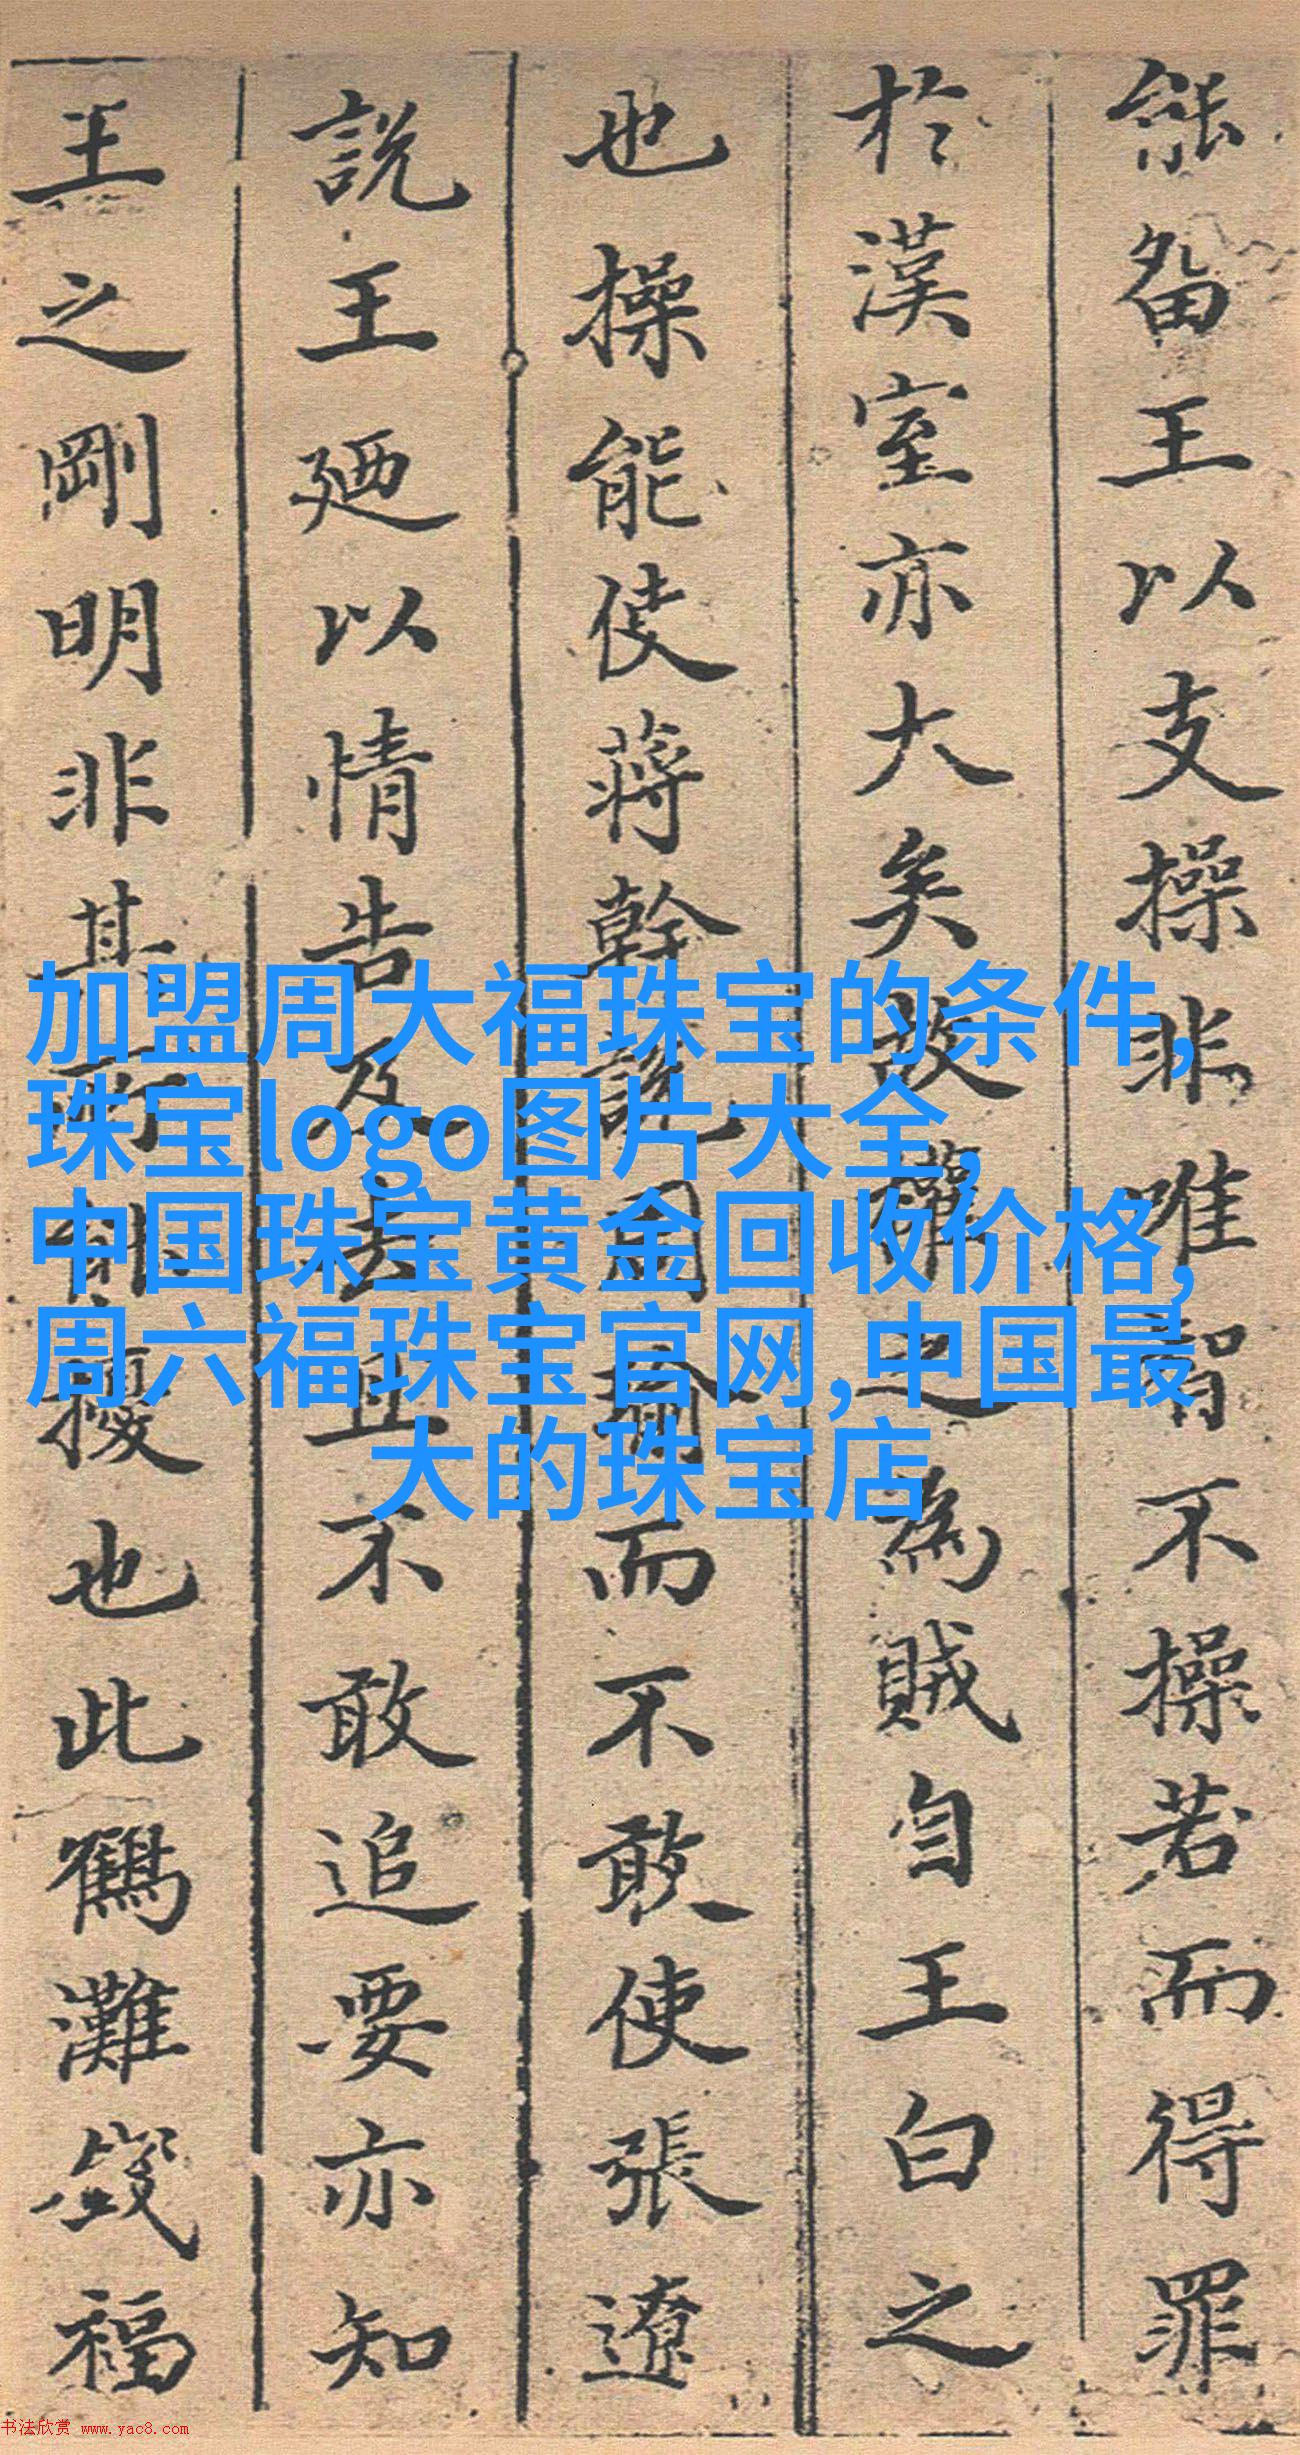 能留王以支操非唯智不操若而得罪
於漢室亦大矣故權之為賊自王白之
也操能使蔣幹說周瑜而不敢使張遼
說王廼以情告及去且不敢追要亦知
王之剛明非其所擾也此鶴灘福
加盟周大福珠宝的条件,
珠宝logo图片大全,
中国珠宝黄金回收价格,
周六福珠宝官网,中国最
大的珠宝店
书法欣赏 www.yac8.com